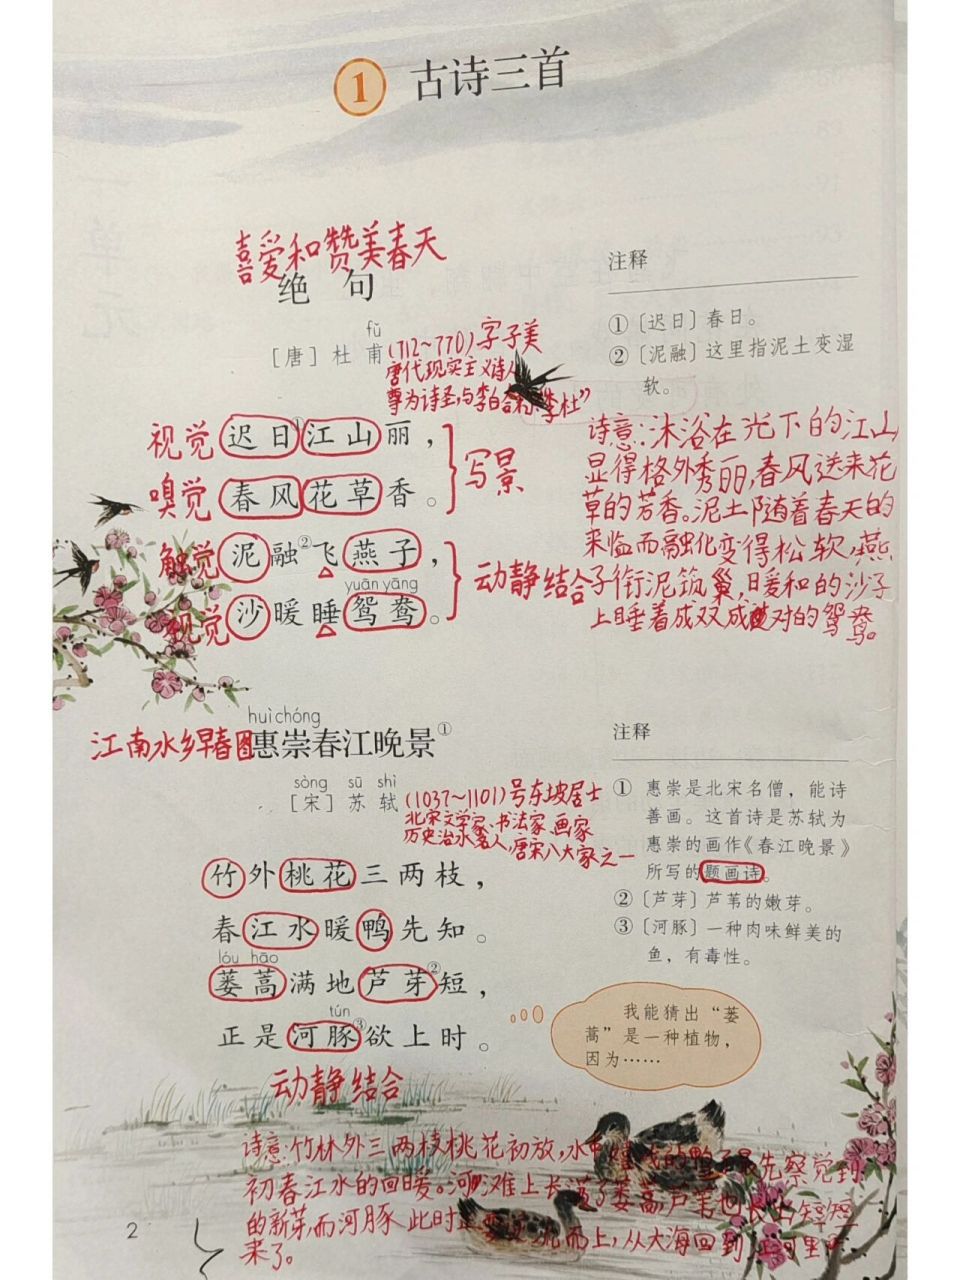 1 古诗三首
喜爱和赞美春天
绝 句
fǔ
[唐] 杜 甫
(712~770)字子美
唐代现实主义诗人
尊为诗圣,与李白合称“李杜”
视觉 迟日①江山丽，
嗅觉 春风花草香。
写景
触觉 泥融②飞燕子，
yuān yāng
视觉 沙暖睡鸳鸯。
动静结合
注释
①〔迟日〕春日。
②〔泥融〕这里指泥土变湿
软。
诗意:沐浴在光下的江山
显得格外秀丽,春风送来花
草的芳香。泥土随着春天的
来临而融化变得松软,燕
子衔泥筑巢,日暖和的沙子
上睡着成双成对的鸳鸯。
huì chóng
江南水乡早春图
惠崇春江晚景①
sòng sū shì
[宋] 苏 轼
(1037~1101)号东坡居士
北宋文学家、书法家、画家
历史治水名人,唐宋八大家之一
竹外桃花三两枝，
春江水暖鸭先知。
lóu hāo
蒌蒿满地芦芽②短，
tún
正是河豚③欲上时。
动静结合
注释
① 惠崇是北宋名僧，能诗
善画。这首诗是苏轼为
惠崇的画作《春江晚景》
所写的题画诗。
②〔芦芽〕芦苇的嫩芽。
③〔河豚〕一种肉味鲜美的
鱼，有毒性。
我能猜出“蒌
蒿”是一种植物，
因为……
诗意:竹林外三两枝桃花初放,水中嬉戏的鸭子最先察觉到
初春江水的回暖。河滩上长满了蒌蒿,芦苇也长出短短
的新芽,而河豚此时正要逆流而上,从大海回到江河里
来了。
2